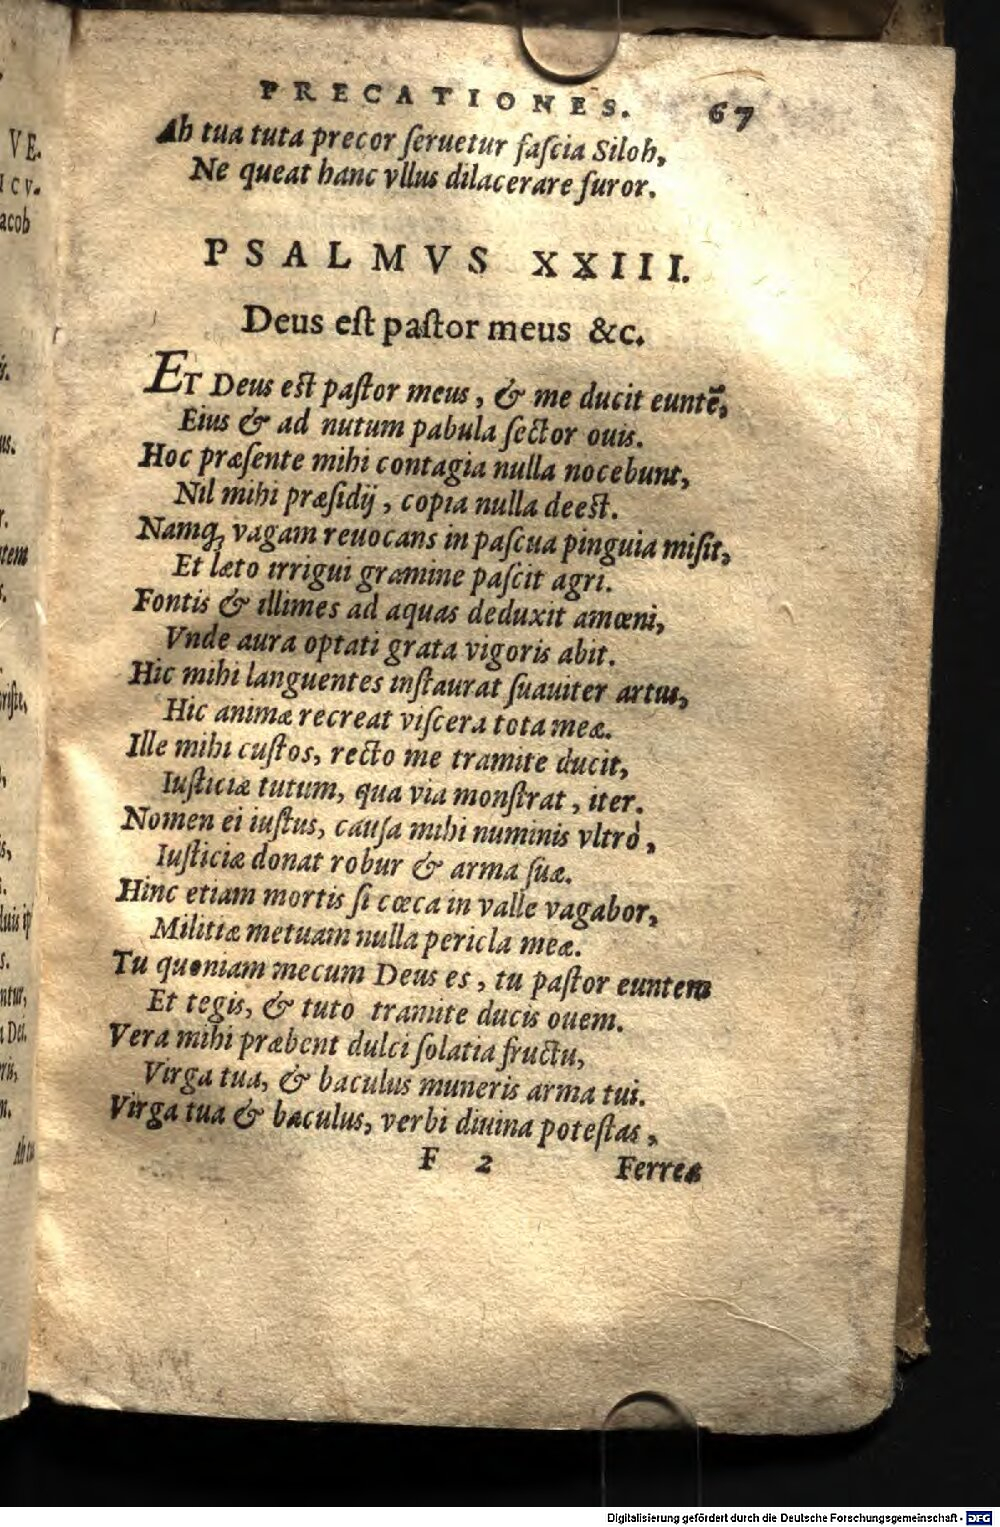 PRECATIONES. 67
Ah tua tuta precor ſeruetur faſcia Siloh,
Ne queat hanc vllus dilacerare furor.
PSALMVS XXIII.
Deus eſt paſtor meus &c.
ET Deus eſt paſtor meus, & me ducit euntē,
Eius & ad nutum pabula ſector ouis.
Hoc præſente mihi contagia nulla nocebunt,
Nil mihi præſidij, copia nulla deeſt.
Namq; vagam reuocans in paſcua pinguia miſit,
Et læto irrigui gramine paſcit agri.
Fontis & illimes ad aquas deduxit amœni,
Vnde aura optati grata vigoris abit.
Hic mihi languentes inſtaurat ſuauiter artus,
Hic animæ recreat viſcera tota meæ.
Ille mihi cuſtos, recto me tramite ducit,
Iuſticiæ tutum, qua via monſtrat, iter.
Nomen ei iuſtus, cauſa mihi numinis vltrò,
Iuſticiæ donat robur & arma ſuæ.
Hinc etiam mortis ſi cœca in valle vagabor,
Militiæ metuam nulla pericla meæ.
Tu quoniam mecum Deus es, tu paſtor euntem
Et tegis, & tuto tramite ducis ouem.
Vera mihi præbent dulci ſolatia fructu,
Virga tua, & baculus muneris arma tui.
Virga tua & baculus, verbi diuina poteſtas,
F 2 Ferrea
VE.
ICV.
acob
Digitalisierung gefördert durch die Deutsche Forschungsgemeinschaft - DFG